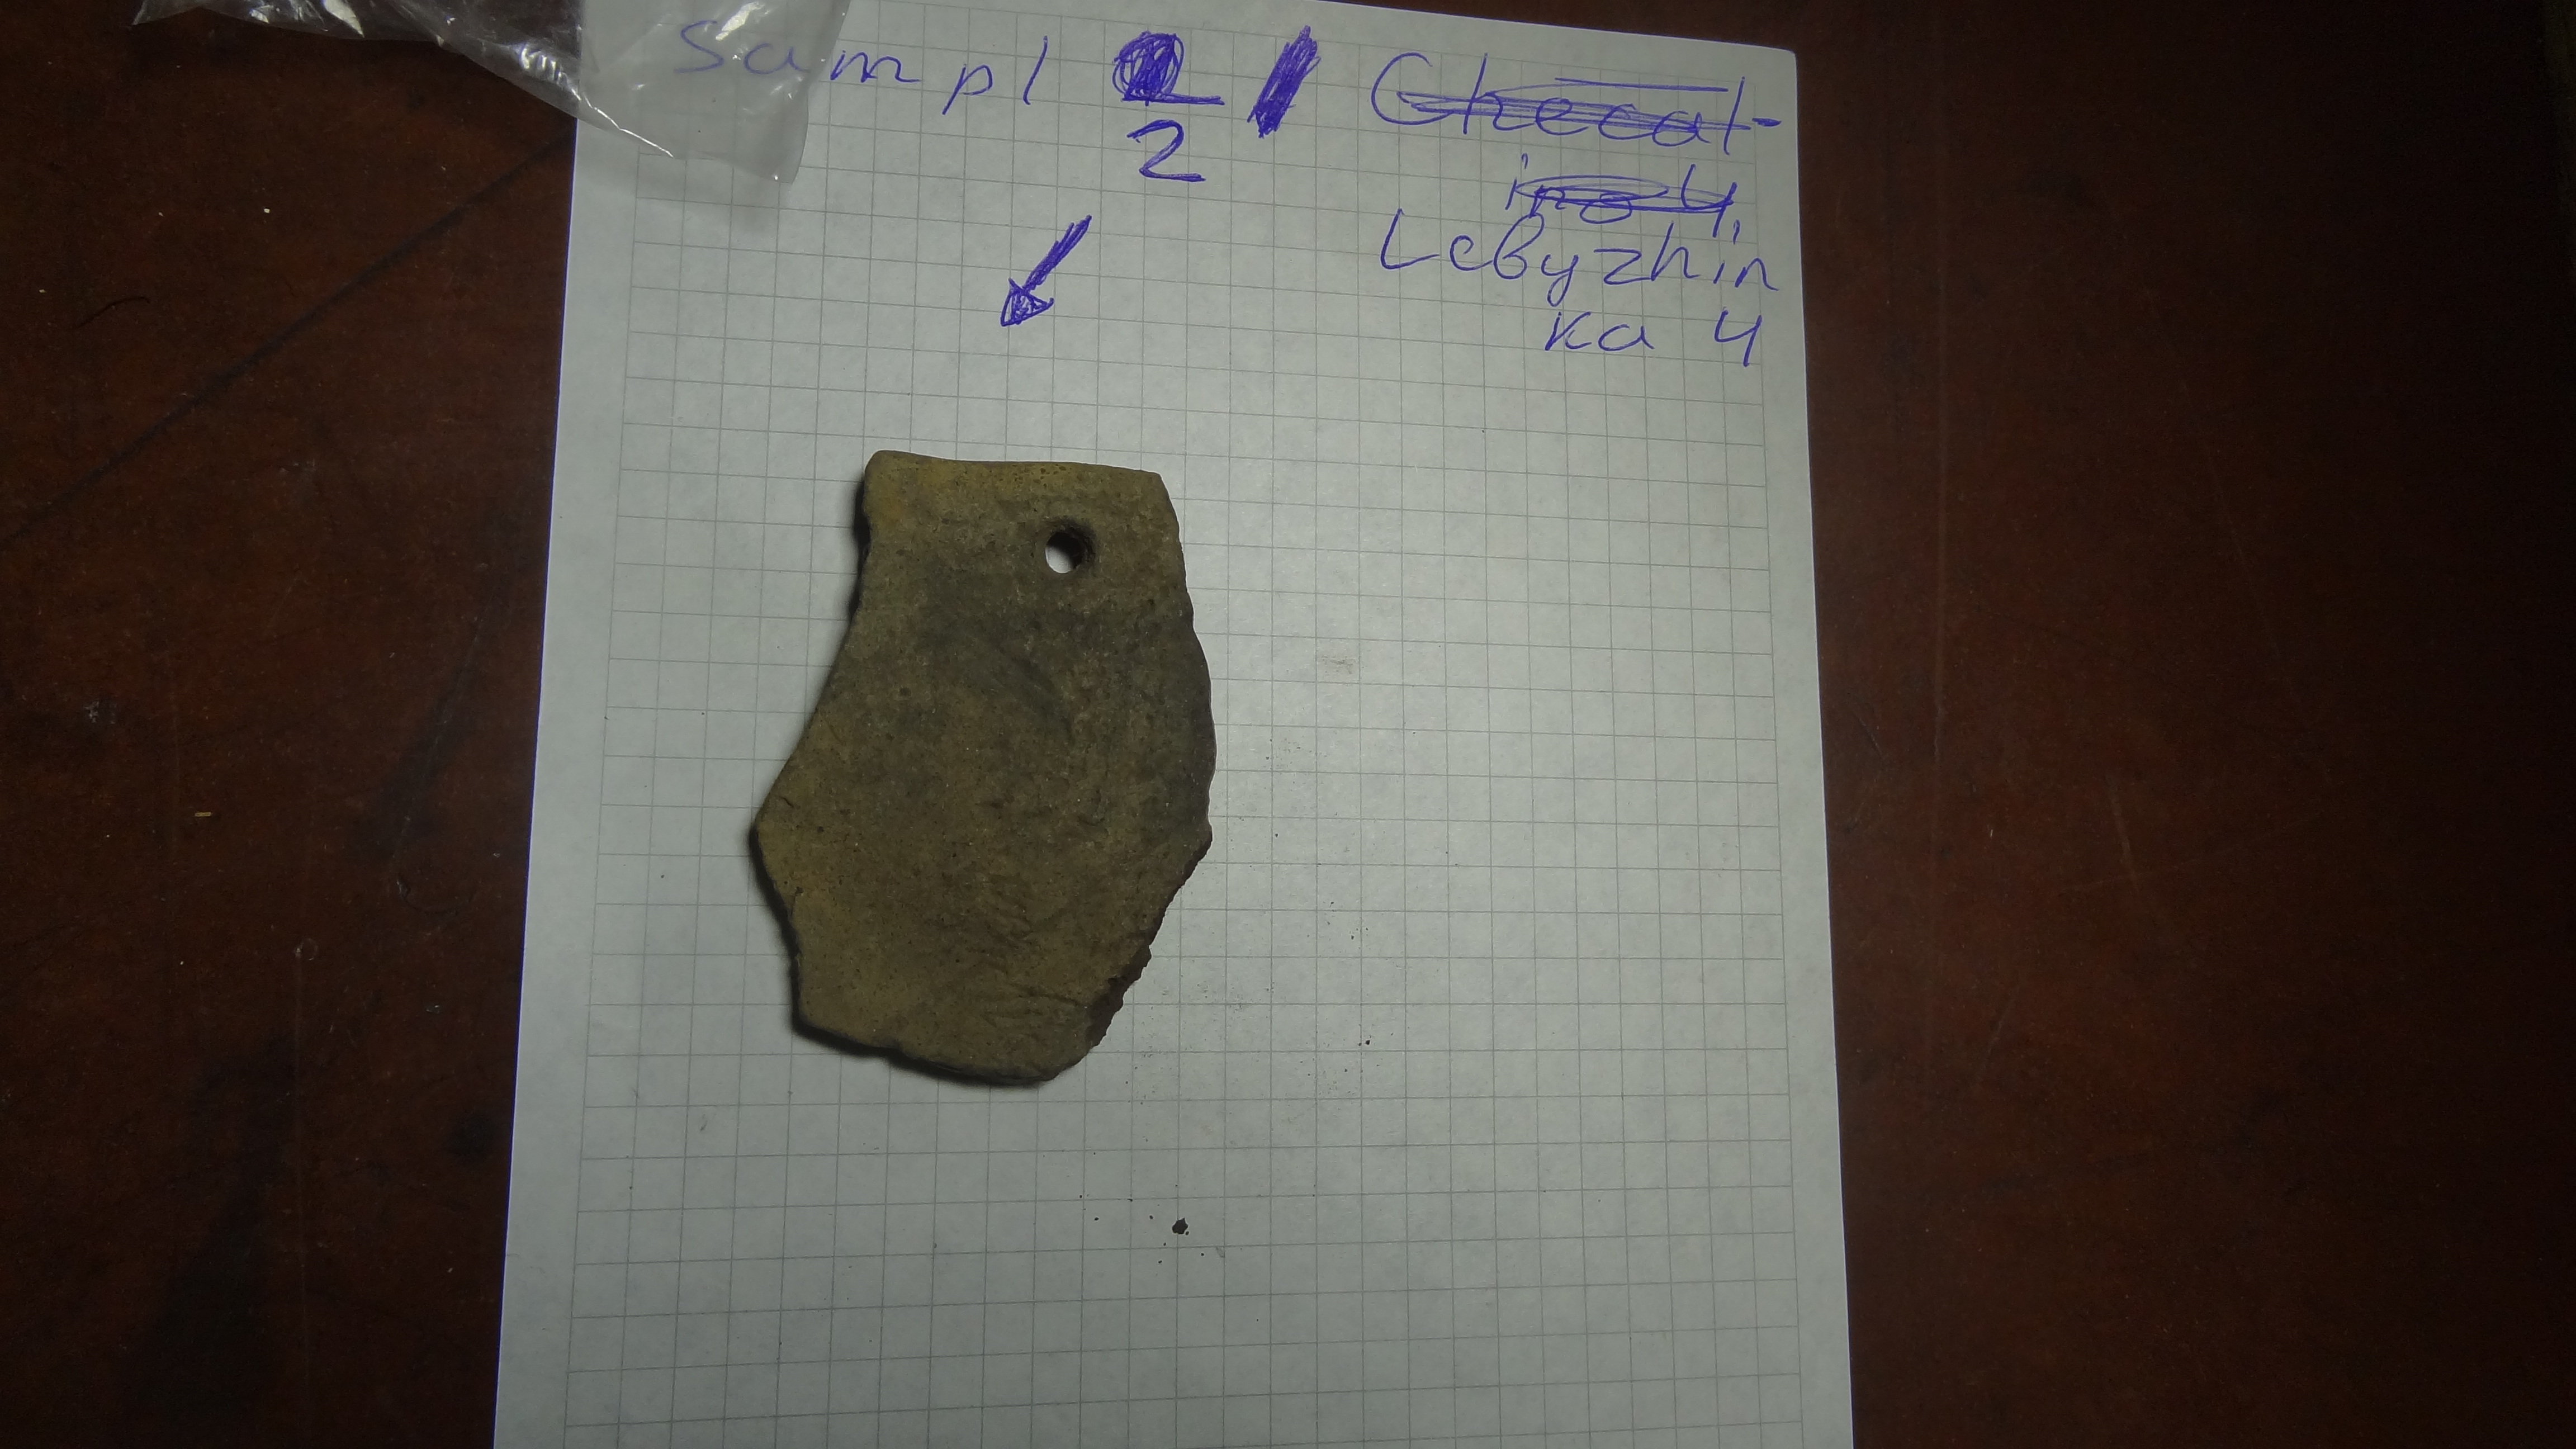 Sampl 2
Checat-
ino 4,
Lebyzhin
ka 4